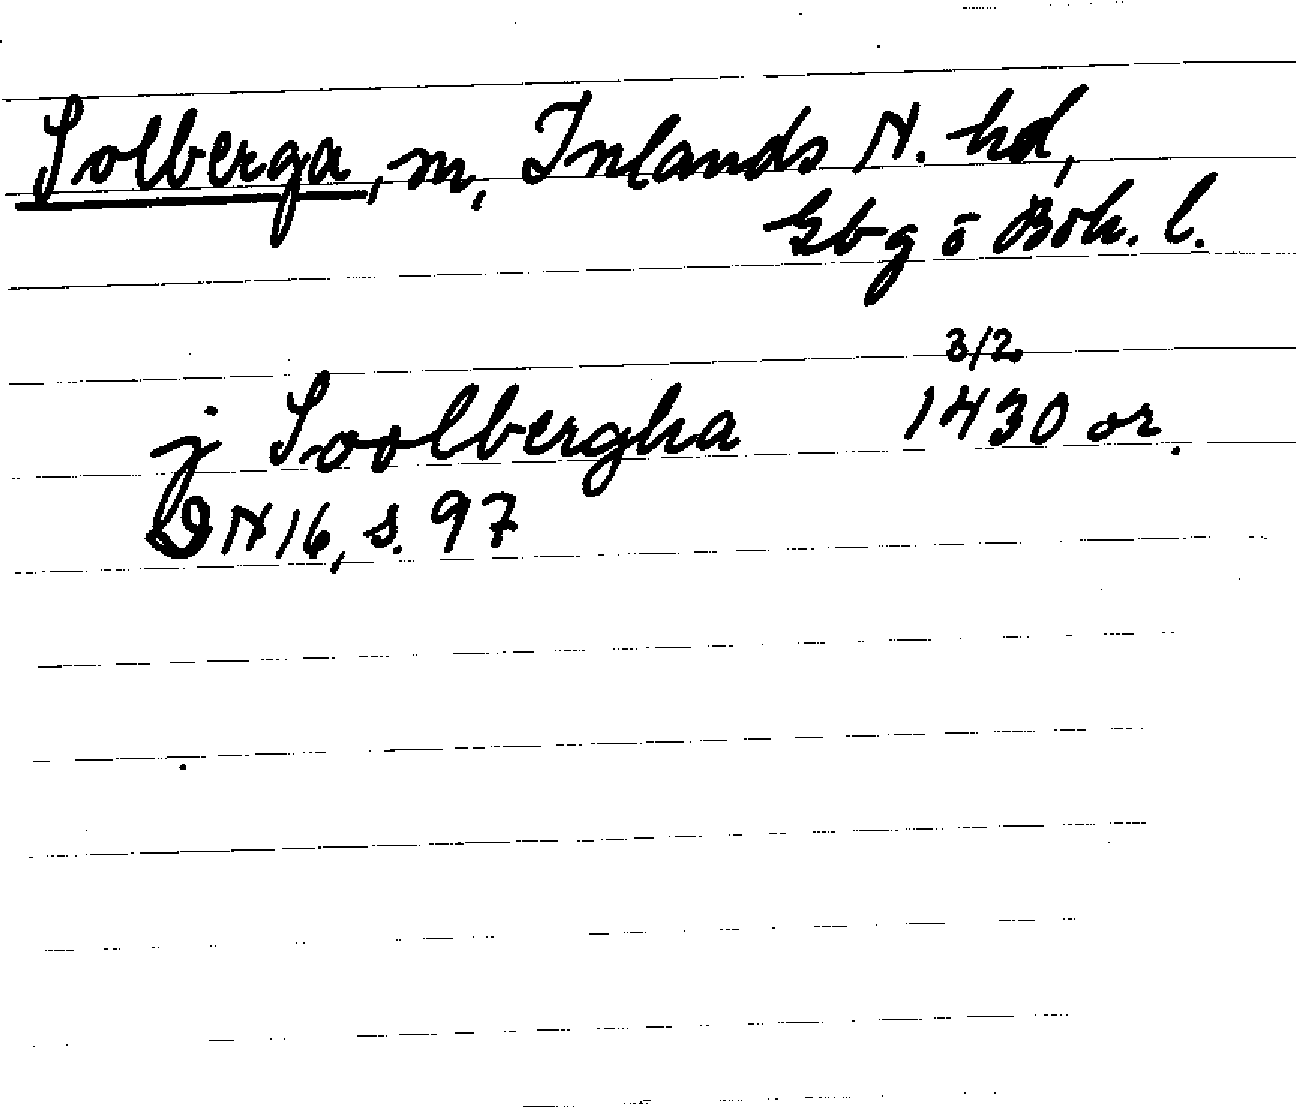 Solberga, sn, Inlands N. hd,
Gbg o Boh. l.
3/2
j Soolbergha 1430 or.
DN 16, s. 97